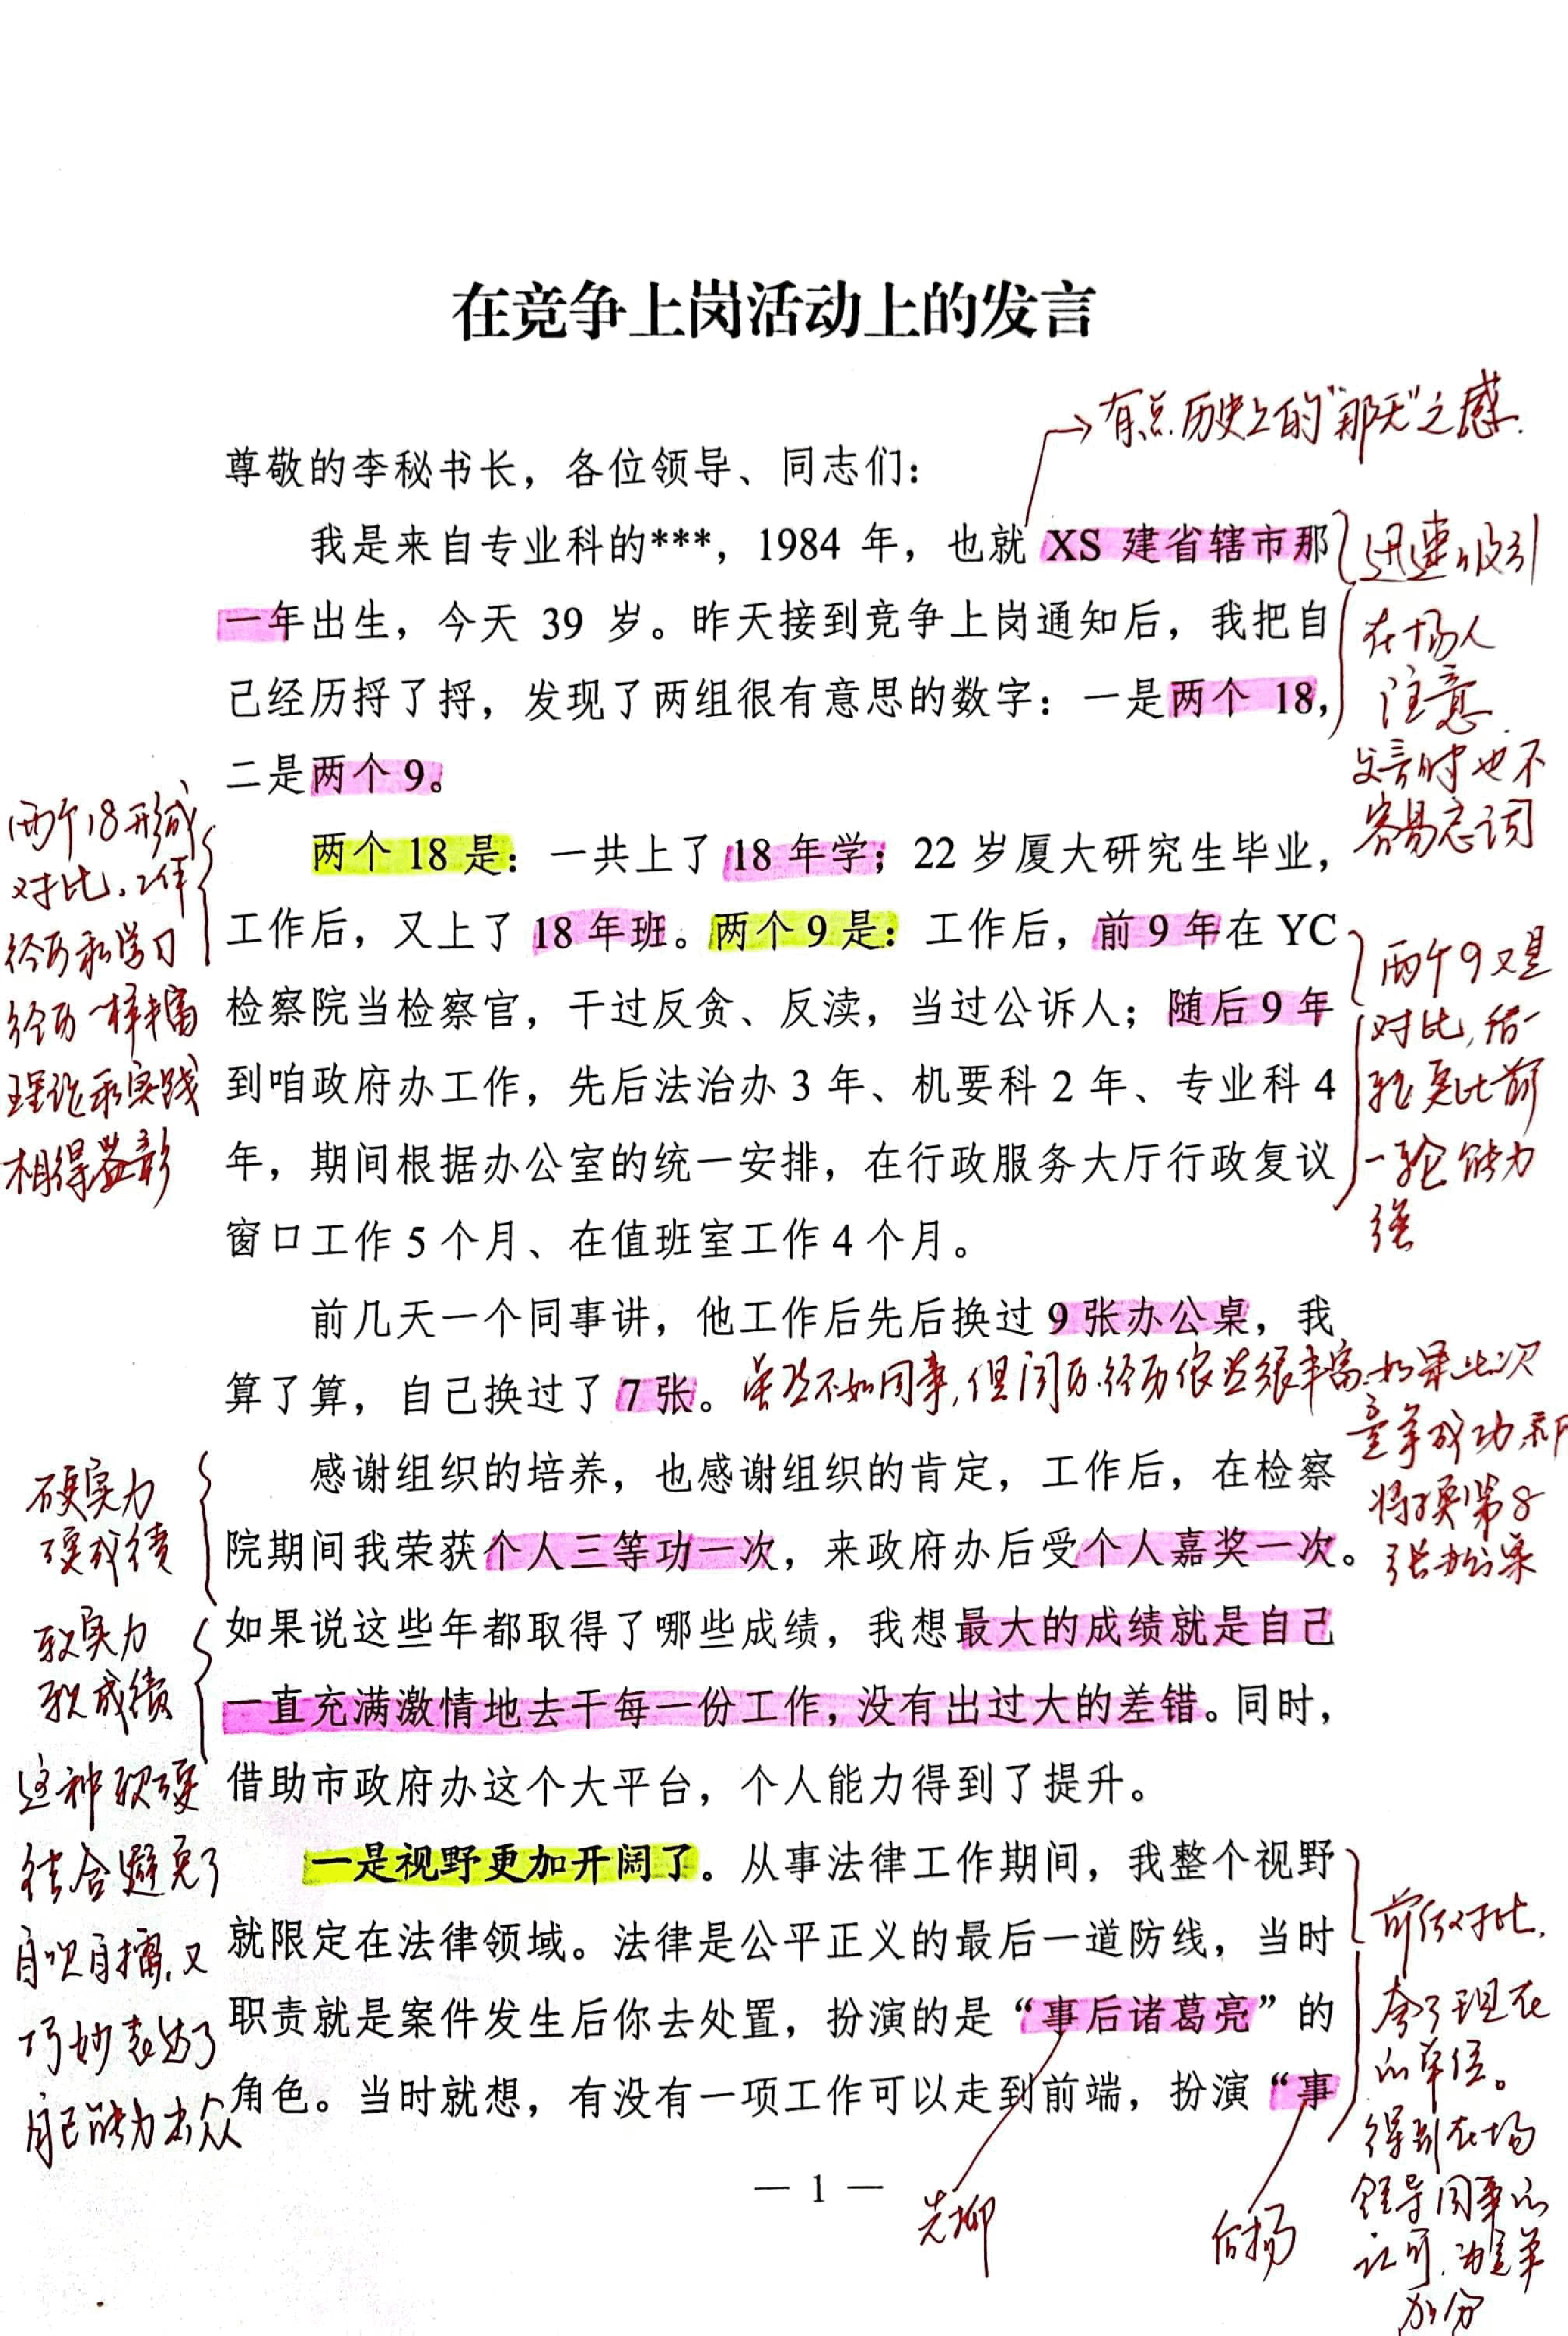 在竞争上岗活动上的发言
→有点历史上的"那天"之感.
尊敬的李秘书长，各位领导、同志们：
我是来自专业科的***，1984 年，也就 XS 建省辖市那
一年出生，今天 39 岁。昨天接到竞争上岗通知后，我把自
己经历捋了捋，发现了两组很有意思的数字：一是两个 18，
二是两个 9。
迅速吸引
在场人
注意.
发言时也不
容易忘词
两个 18 是：一共上了 18 年学；22 岁厦大研究生毕业，
工作后，又上了 18 年班。两个 9 是：工作后，前 9 年在 YC
检察院当检察官，干过反贪、反渎，当过公诉人；随后 9 年
到咱政府办工作，先后法治办 3 年、机要科 2 年、专业科 4
年，期间根据办公室的统一安排，在行政服务大厅行政复议
窗口工作 5 个月、在值班室工作 4 个月。
两个18形成
对比,工作
经历和学习
经历一样丰富
理论和实践
相得益彰
两个9又是
对比,后一
轮更比前
一轮能力
强
前几天一个同事讲，他工作后先后换过 9 张办公桌，我
算了算，自己换过了 7 张。
虽然不如同事,但阅历.经历依然很丰富.如果此次
竞争成功,和
将换第8
张办公桌
感谢组织的培养，也感谢组织的肯定，工作后，在检察
院期间我荣获个人三等功一次，来政府办后受个人嘉奖一次。
如果说这些年都取得了哪些成绩，我想最大的成绩就是自己
一直充满激情地去干每一份工作，没有出过大的差错。同时，
借助市政府办这个大平台，个人能力得到了提升。
硬实力
硬成绩
软实力
软成绩
这种软硬
结合避免了
自吹自擂,又
巧妙表达了
自己能力出众
一是视野更加开阔了。从事法律工作期间，我整个视野
就限定在法律领域。法律是公平正义的最后一道防线，当时
职责就是案件发生后你去处置，扮演的是“事后诸葛亮”的
角色。当时就想，有没有一项工作可以走到前端，扮演“事
前后对比,
夸了现在
的单位。
得到在场
领导同事的
认可,为竞争
加分
先抑
后扬
— 1 —